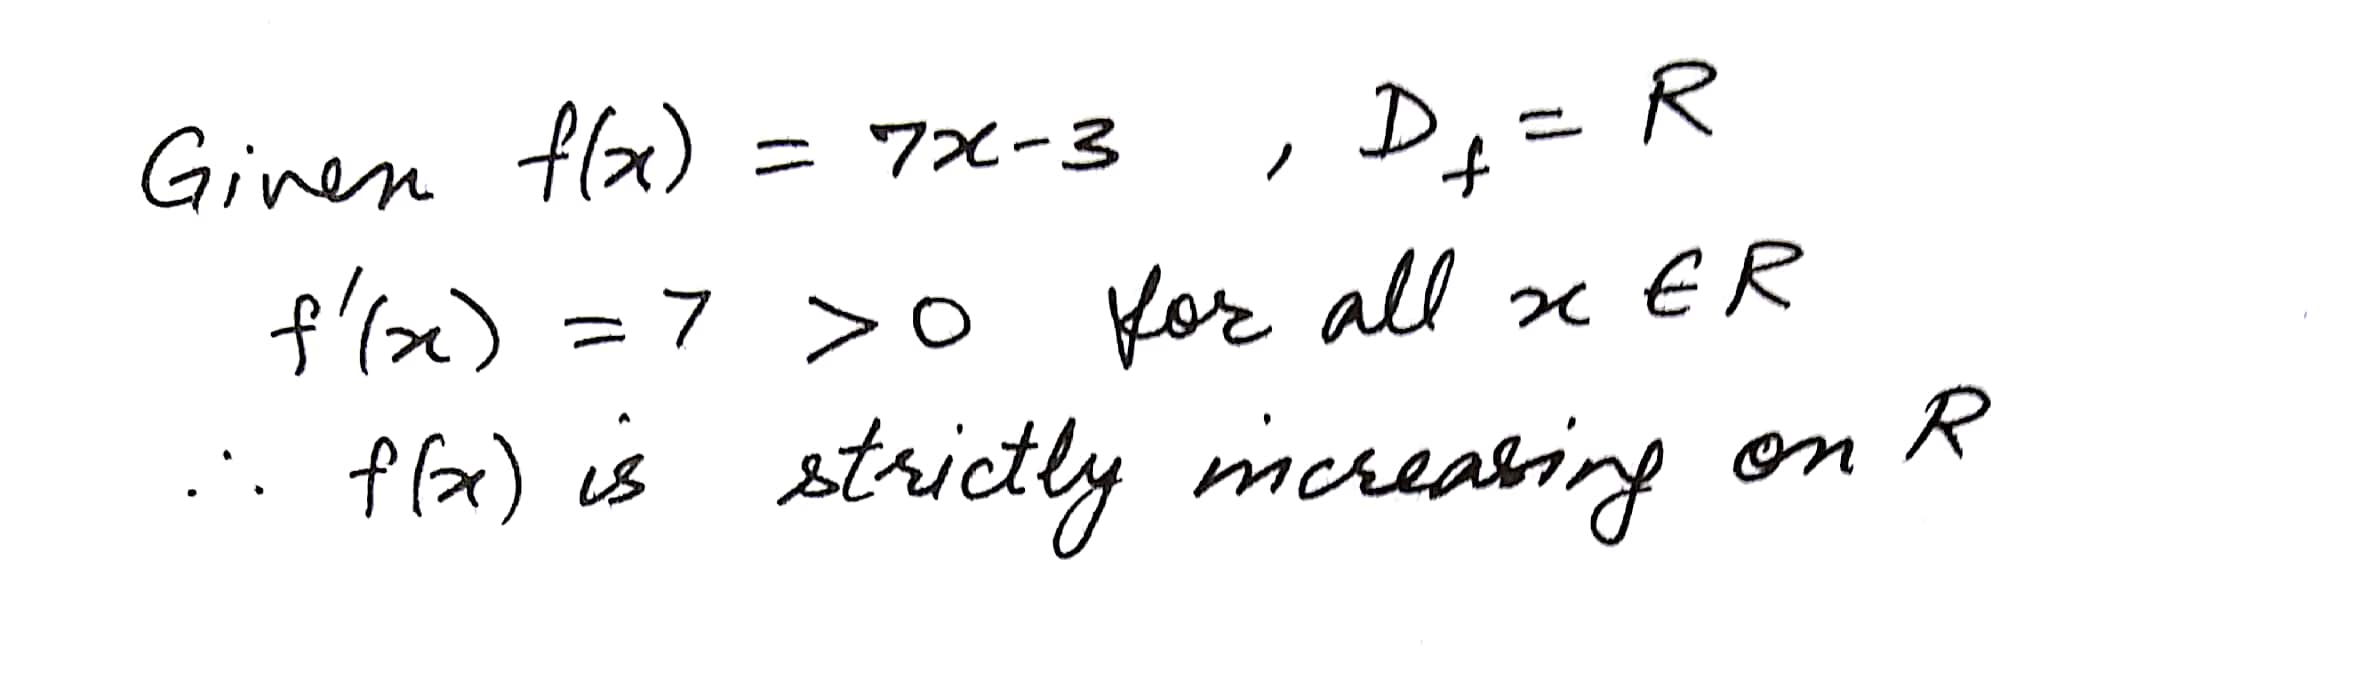 Given f(x) = 7x-3 , D_f = R
f'(x) = 7 > 0 for all x ∈ R
∴ f(x) is strictly increasing on R